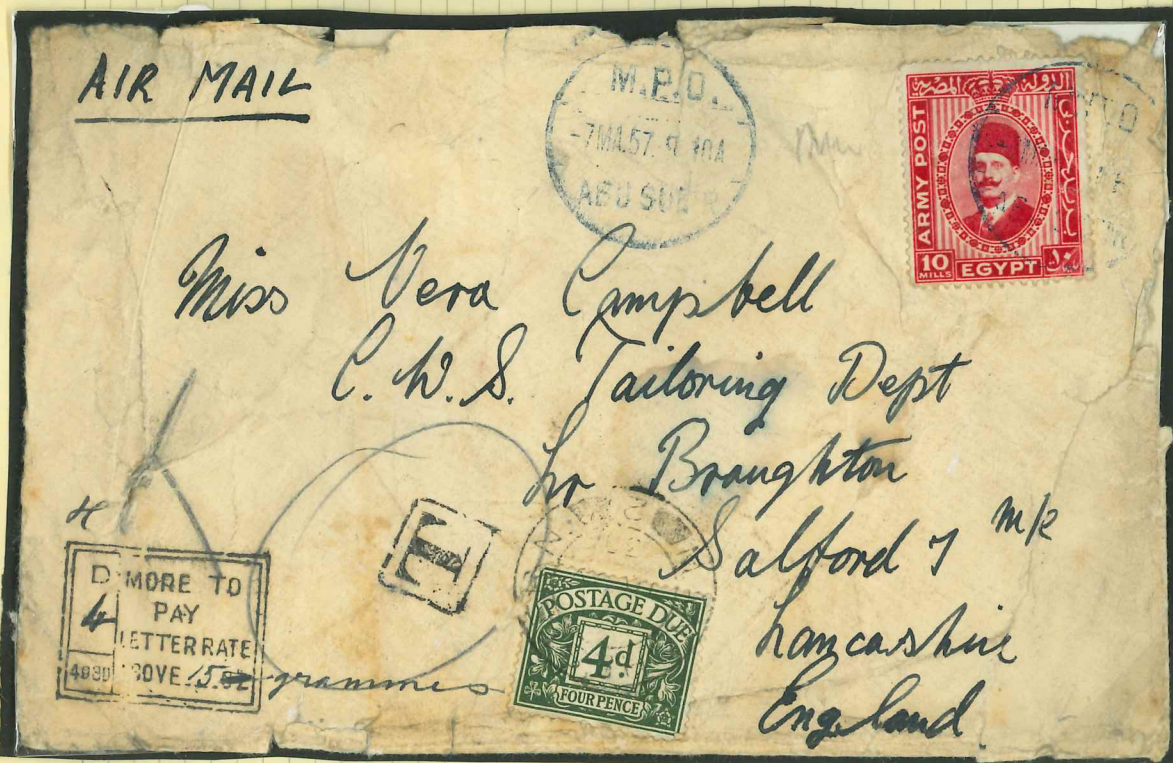 AIR MAIL
M.P.O.
ABU SUEIR
الدولة المصرية
ARMY POST
10
MILLS
EGYPT
Miss Vera Campbell
C.W.S. Tailoring Dept
Lr Broughton
Salford 7 M/c
Lancashire
England
T
4
D
4
MORE TO
PAY
LETTER RATE
15 grammes
POSTAGE DUE
4d.
FOUR PENCE